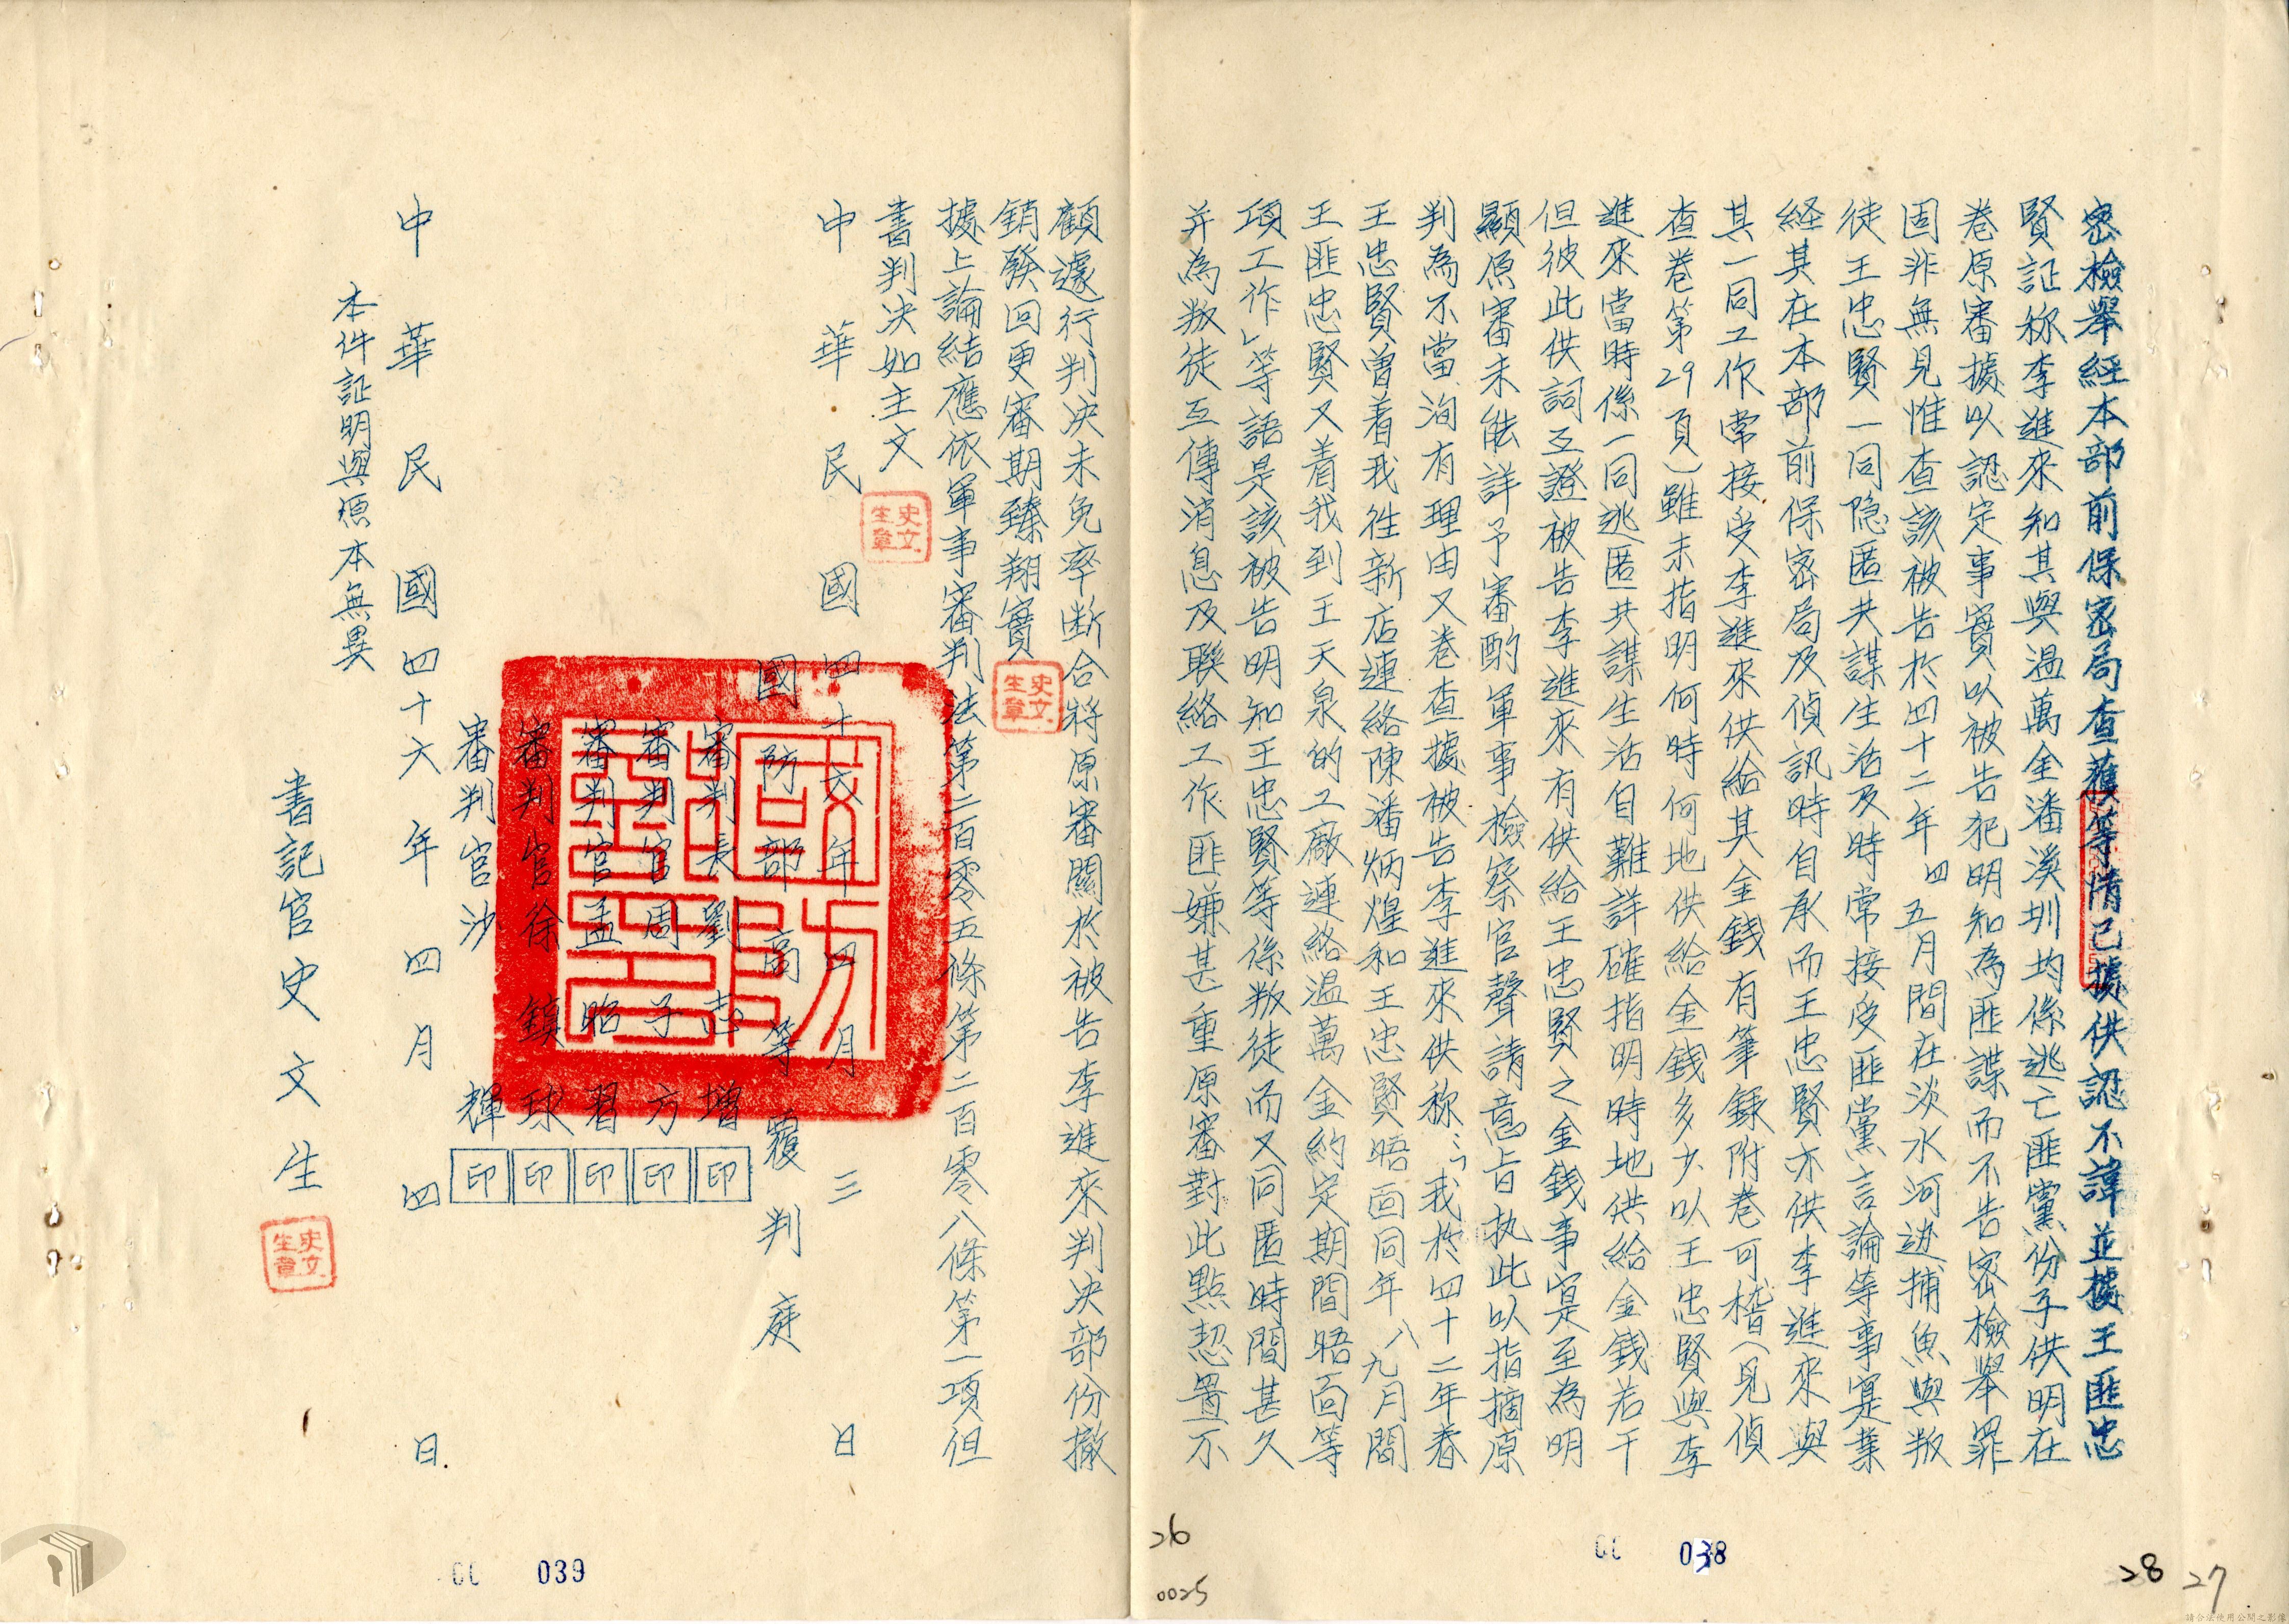 密檢舉經本部前保密局查獲等情已據供認不諱並據王匪忠
賢証称李進來知其與溫萬金潘溪圳均係逃亡匪黨份子供明在
卷原審據以認定事實以被告犯明知為匪諜而不告密檢舉罪
固非無見惟查該被告於四十二年四五月間在淡水河边捕魚與叛
徒王忠賢一同隐匿共謀生活及時常接受匪黨言論等事寔業
経其在本部前保密局及偵訊時自承而王忠賢亦供李進來與
其一同工作常接受李進來供給其金錢有筆錄附卷可稽(見偵
查卷第29頁)雖未指明何時何地供給金錢多少以王忠賢與李
進來當時係一同逃匿共謀生活自難詳確指明時地供給金錢若干
但彼此供詞互證被告李進來有供給王忠賢之金錢事寔至為明
顯原審未能詳予審酌軍事檢察官聲請意旨执此以指摘原
判為不當洵有理由又卷查據被告李進來供称：「我於四十二年春
王忠賢曾着我往新店連絡陳潘炳煌和王忠賢晤面同年八九月間
王匪忠賢又着我到王天泉的工廠連絡溫萬金約定期間晤面等
項工作」等語是該被告明知王忠賢等係叛徒而又同匿時間甚久
并為叛徒互傳消息及联絡工作匪嫌甚重原審對此點恝置不
顧遽行判决未免率断合將原審關於被告李進來判决部份撤
銷發回更審期臻翔實
據上論結應依軍事審判法第二百零五條第二百零八條第一項但
書判决如主文
中華民國四十六年四月三日
國防部高等覆判庭
審判長劉志增印
審判官周子方印
審判官孟昭習印
審判官徐鎮球印
審判官沙輝印
中華民國四十六年四月四日
本件証明與原本無異
書記官史文生
史文生章
史文生章
史文生章
26
0025
038
28
27
039
請合法使用公開之影像